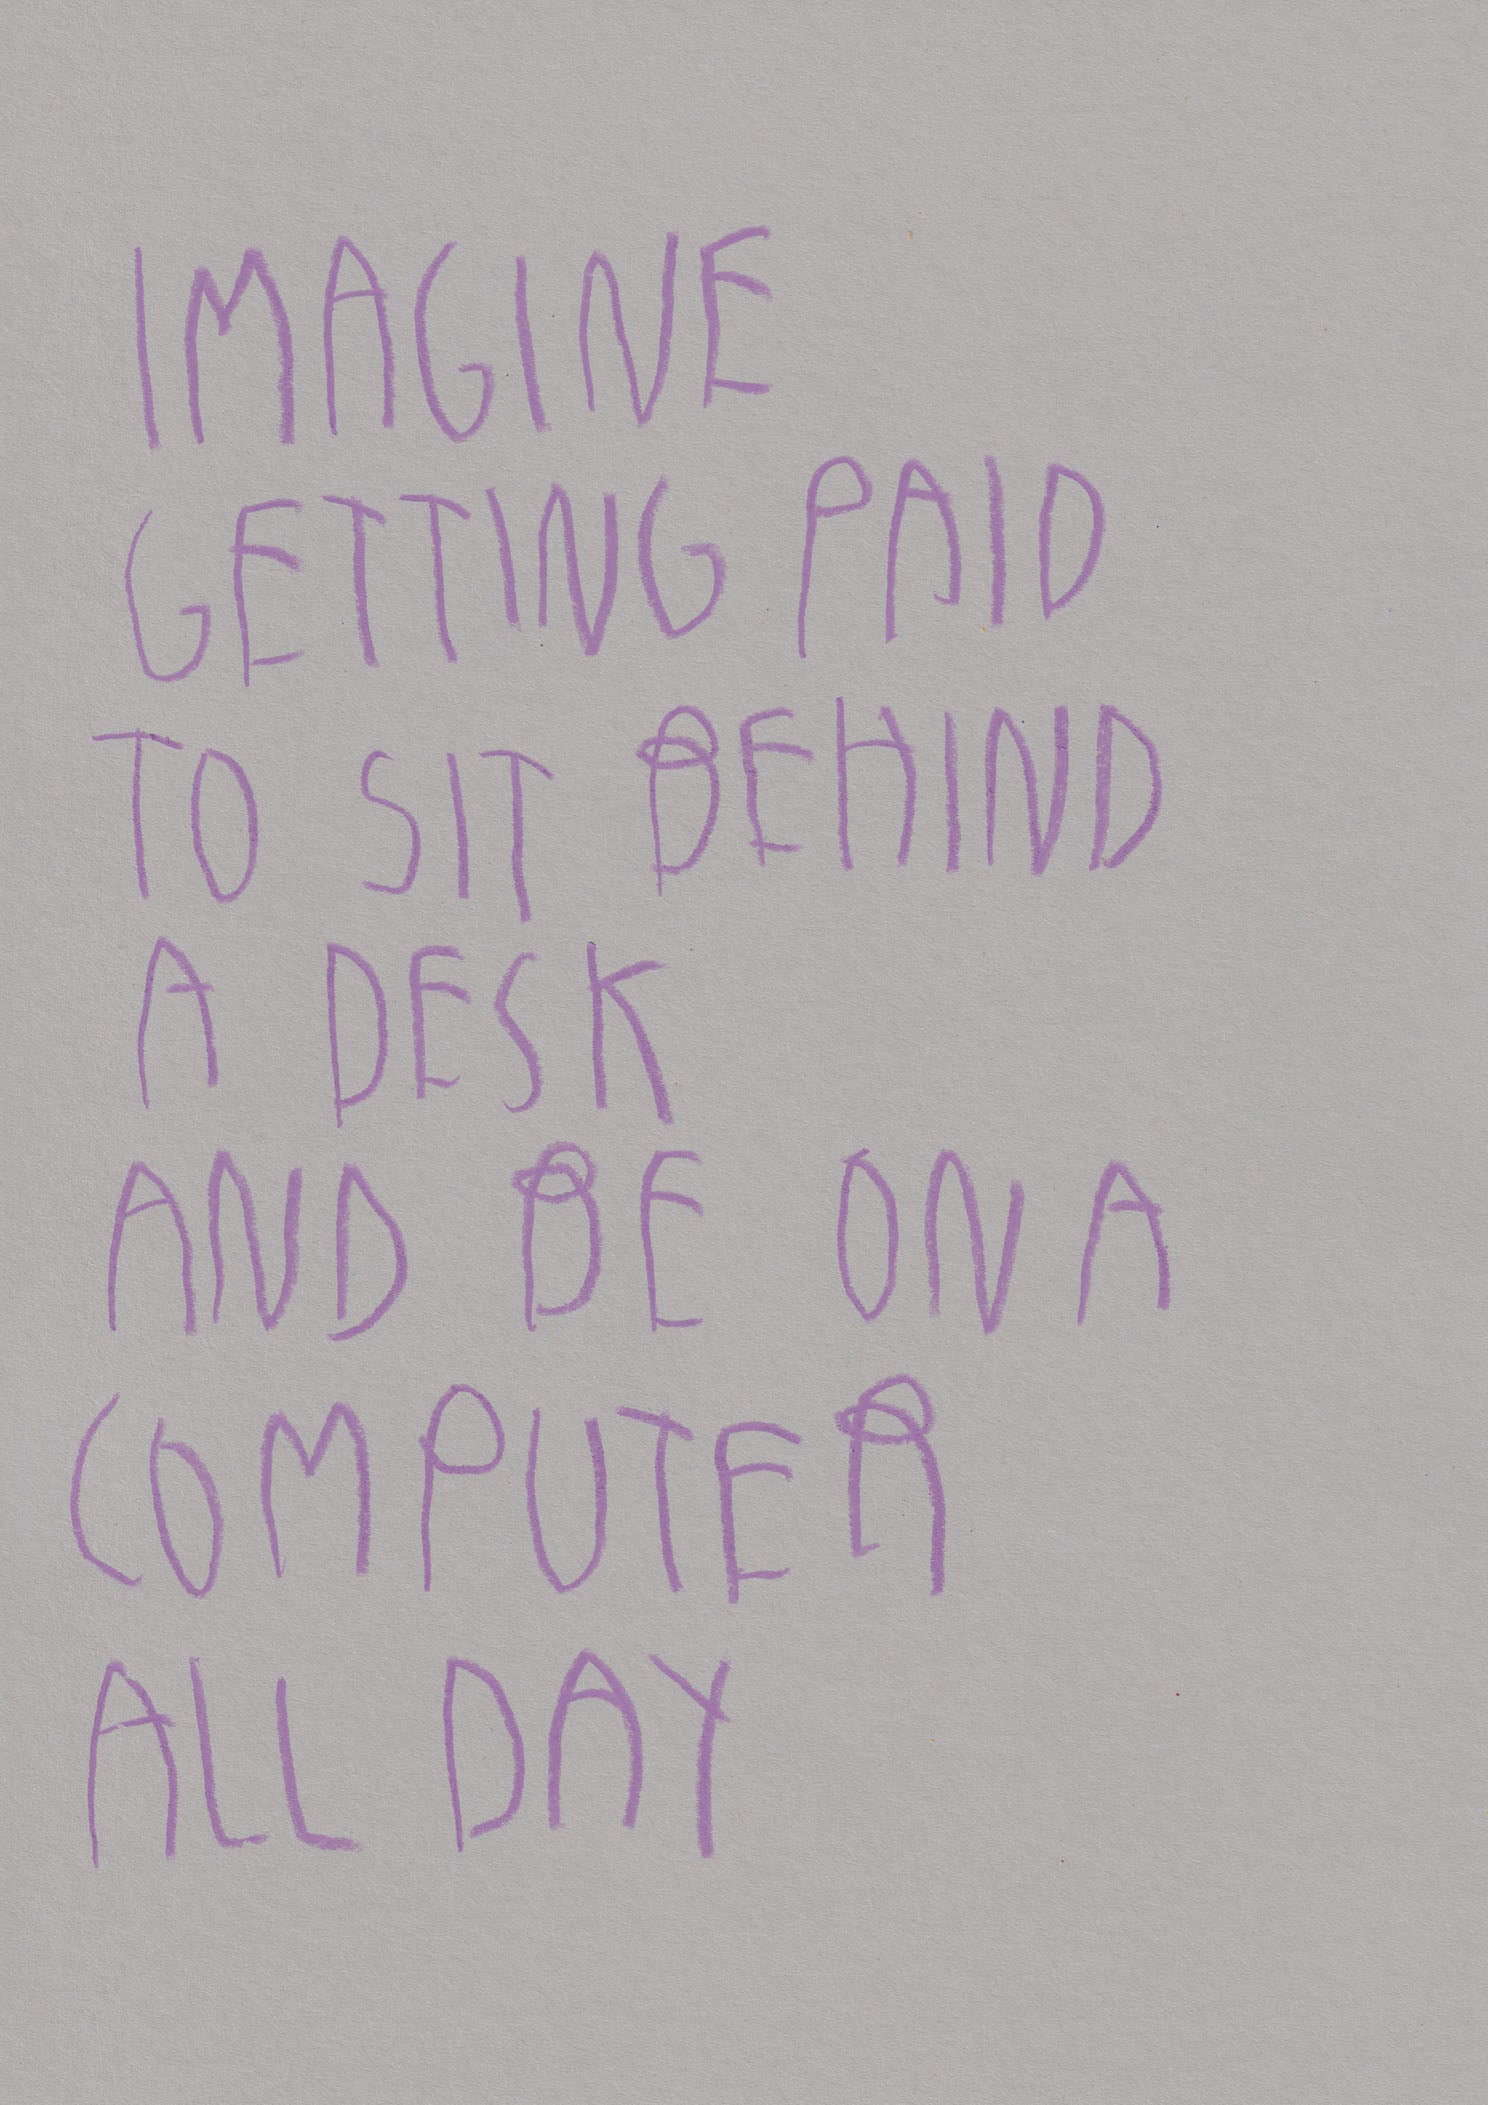 IMAGINE
GETTING PAID
TO SIT BEHIND
A DESK
AND BE ON A
COMPUTER
ALL DAY